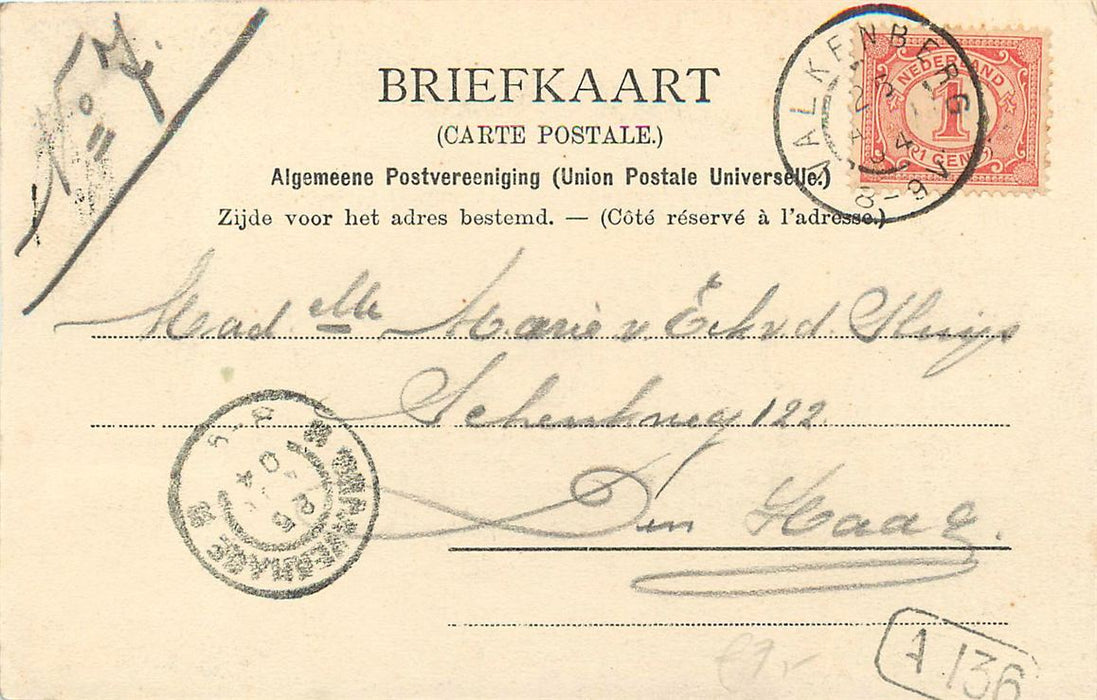 BRIEFKAART
(CARTE POSTALE.)
Algemeene Postvereeniging (Union Postale Universelle.)
Zijde voor het adres bestemd. — (Côté réservé à l'adresse.)
VALKENBERG
8-9V
NEDERLAND
1
CENT
Mad elle Marie v. Eck v.d. Sluijs
Schenkweg 122.
Den Haag.
'S-GRAVENHAGE
A 136